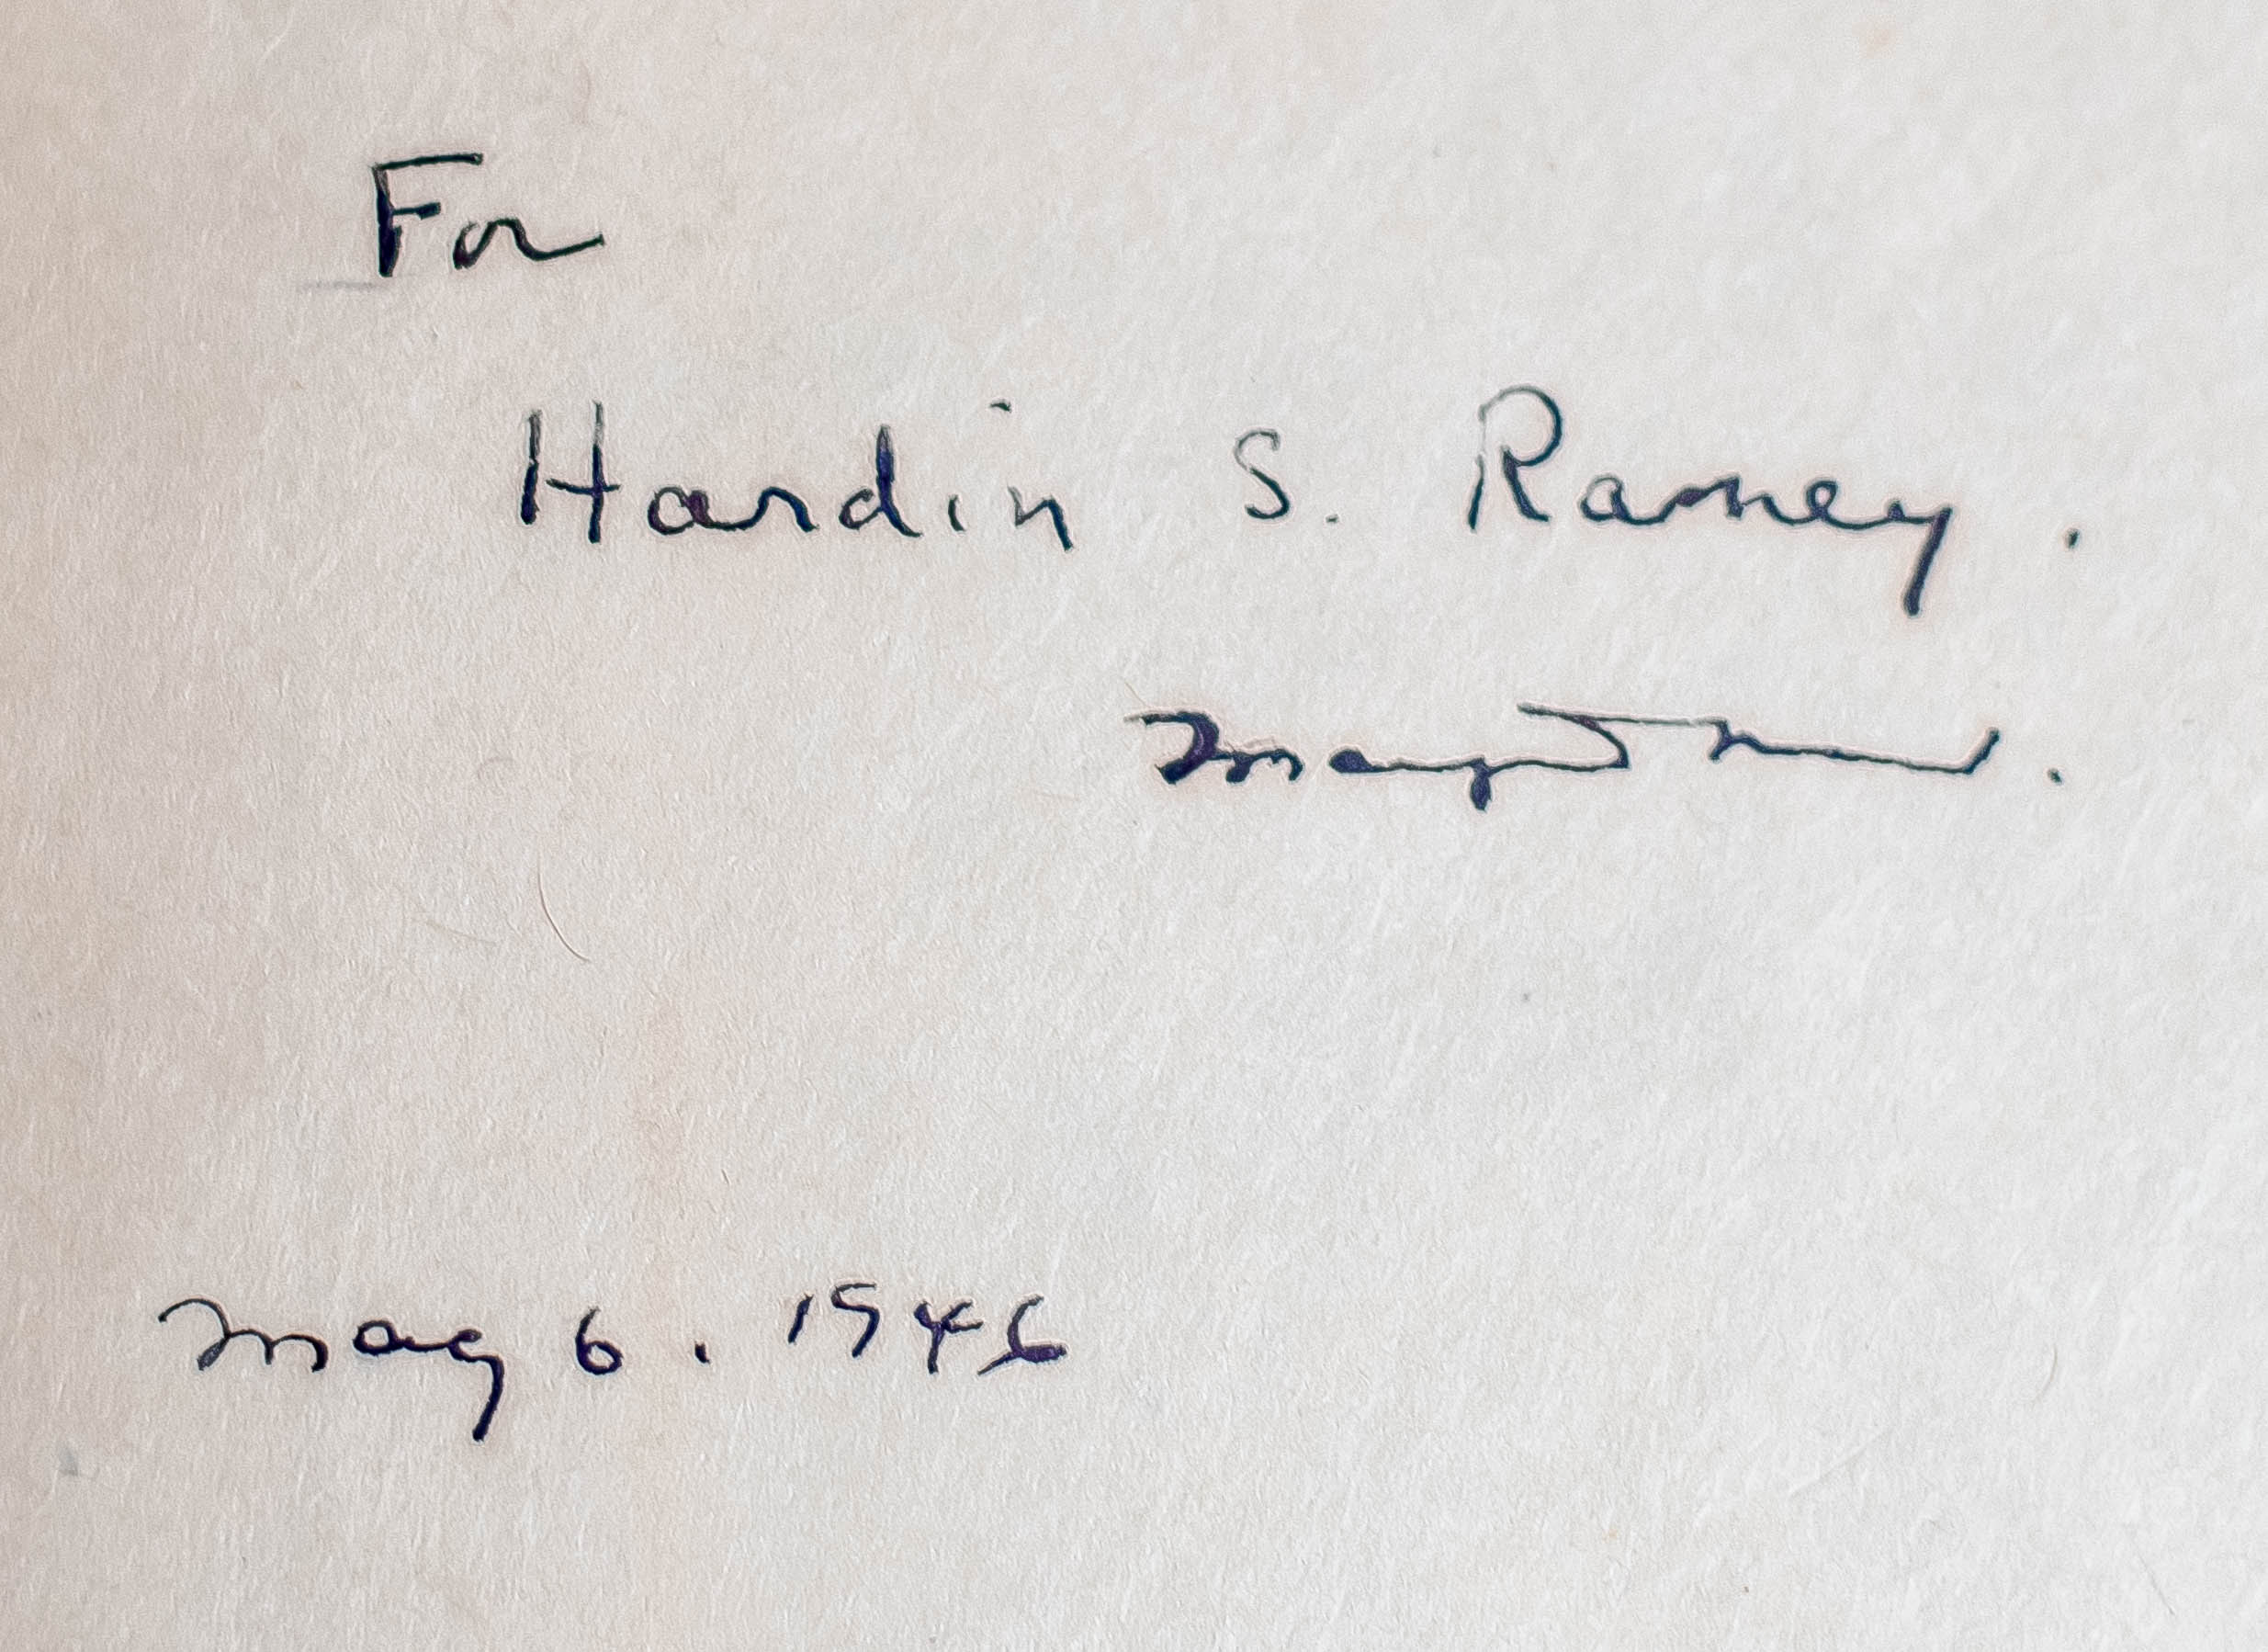 For
Hardin S. Ramey.
May 6. 1946